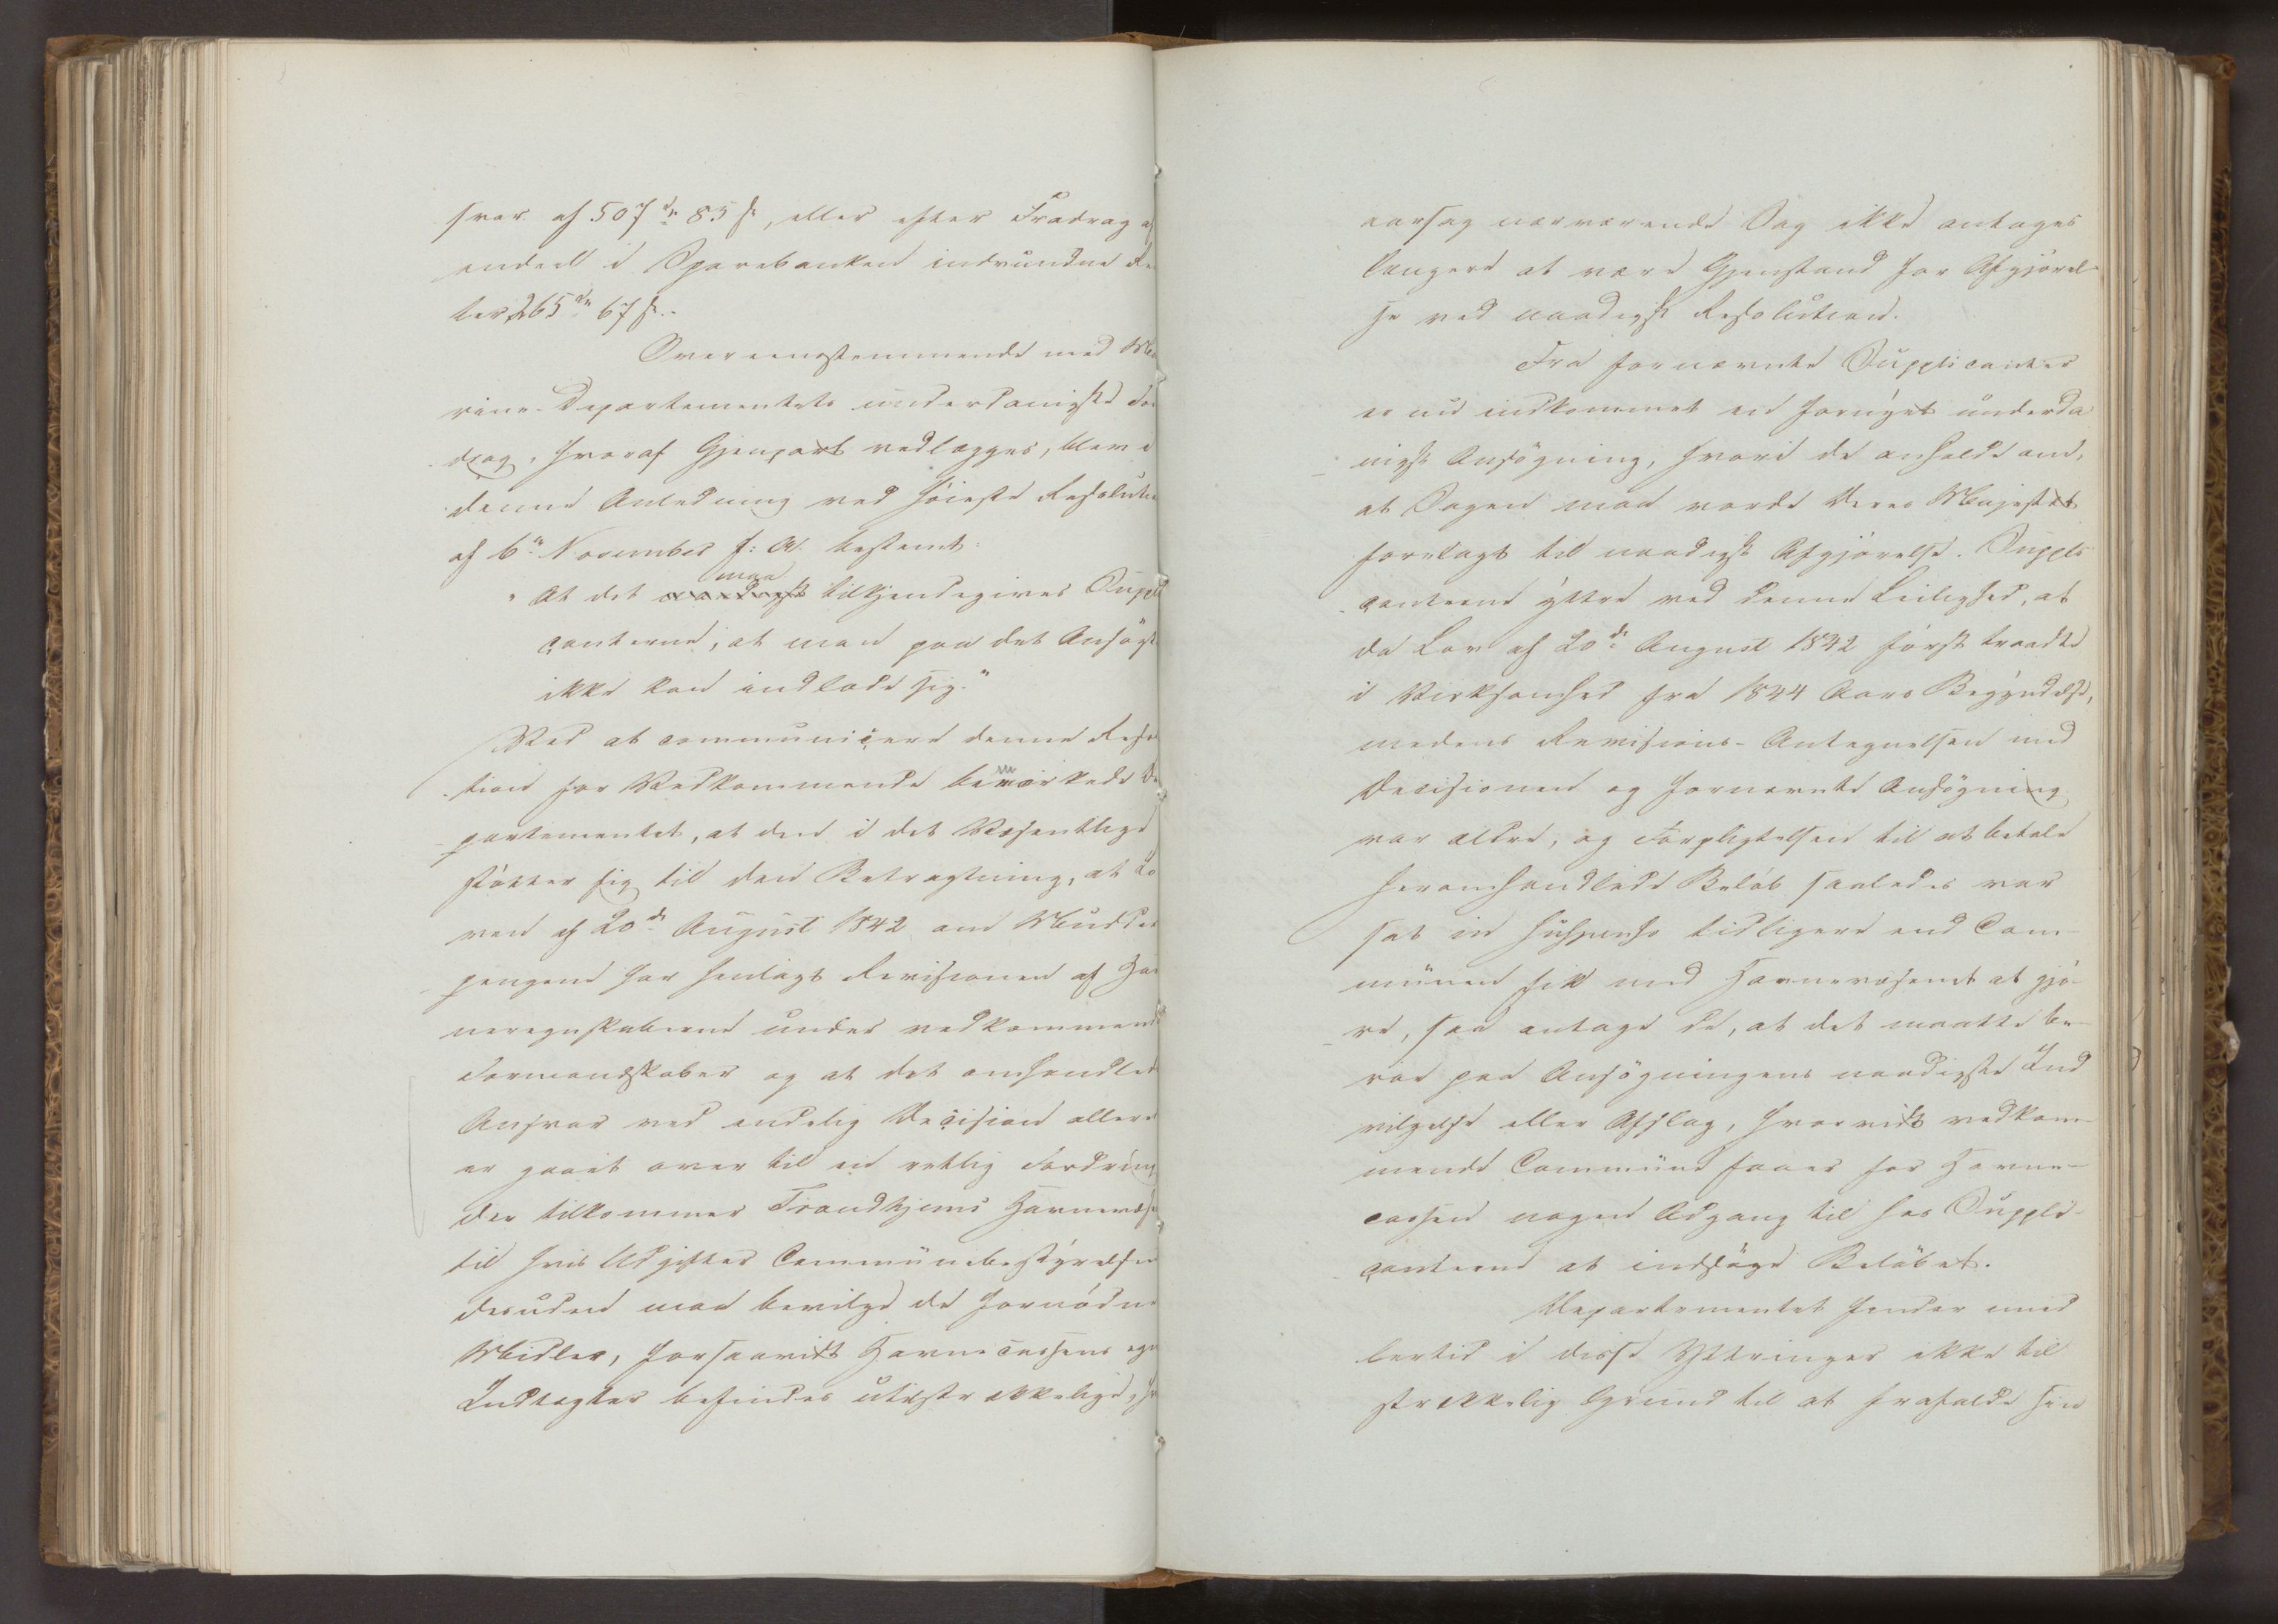 svar af 507 d: 85 s, eller efter Fradrag af
endeel i Sparebanken indvundne Ren
ter 265 d: 67 s.-
Overeensstemmende med Ma
rine-Departementets underdanigste For
drag, hvoraf Gjenpart vedlægges, blev i
denne Anledning ved høieste Resolution
af 6te November f: A. bestemt:
"At det maa tilkjendegives Suppli
qanterne, at man paa det Ansøgte
ikke kan indlade sig."
Ved at communicere denne Resolu
tion for Vedkommende bemærkede De
partementet, at den i det Væsentlige
støtter sig til den Betragtning, at Lo
ven af 20de August 1842 om Mudder
pengene har henlagt Revisionen af Hav
neregnskaberne under vedkommende
Formandskaber og at det omhandlede
Ansvar ved endelig Decision allerede
er gaaet over til en retlig Fordring
der tilkommer Trondhjems Havnevæsen
til hvis Udgifter Communebestyrelsen
desuden maa bevilge de fornødne
Midler, forsaavidt Havnecassens egne
Indtægter befindes utilstrækkelige, hv
aarsag nærværende Sag ikke antages
længere at være Gjenstand for Afgjørel-
se ved naadigst Resolution.
Fra fornævnte Supplicanter
er nu indkommet en fornyet underda
nigst Ansøgning, hvori de anholde om,
at Sagen maa vorde Deres Majestæt
forelagt til naadigst Afgjørelse. Suppli
qanterne yttre ved denne Leilighed, at
da Lov af 20de August 1842 først traadte
i Virksomhed fra 1844 Aars Begyndelse,
medens Revisions-Antegnelsen med
Decisionen og fornævnte Ansøgning
var ældre, og Forpligtelsen til at betale
heromhandlede Beløb saaledes var
sat in suspenso tidligere end Com-
münen fik med Havnevæsenet at gjø-
re, saa antage de, at det maatte be-
roe paa Ansøgningens naadigste Ind
vilgelse eller Afslag, hvorvidt vedkom-
mende Commüne faaer for Havne-
cassen nogen Adgang til hos Suppli-
qanterne at indsøge Beløbet.
Departementet finder imid
lertid i disse Yttringer ikke til
strækkelig Grund til at frafalde sin